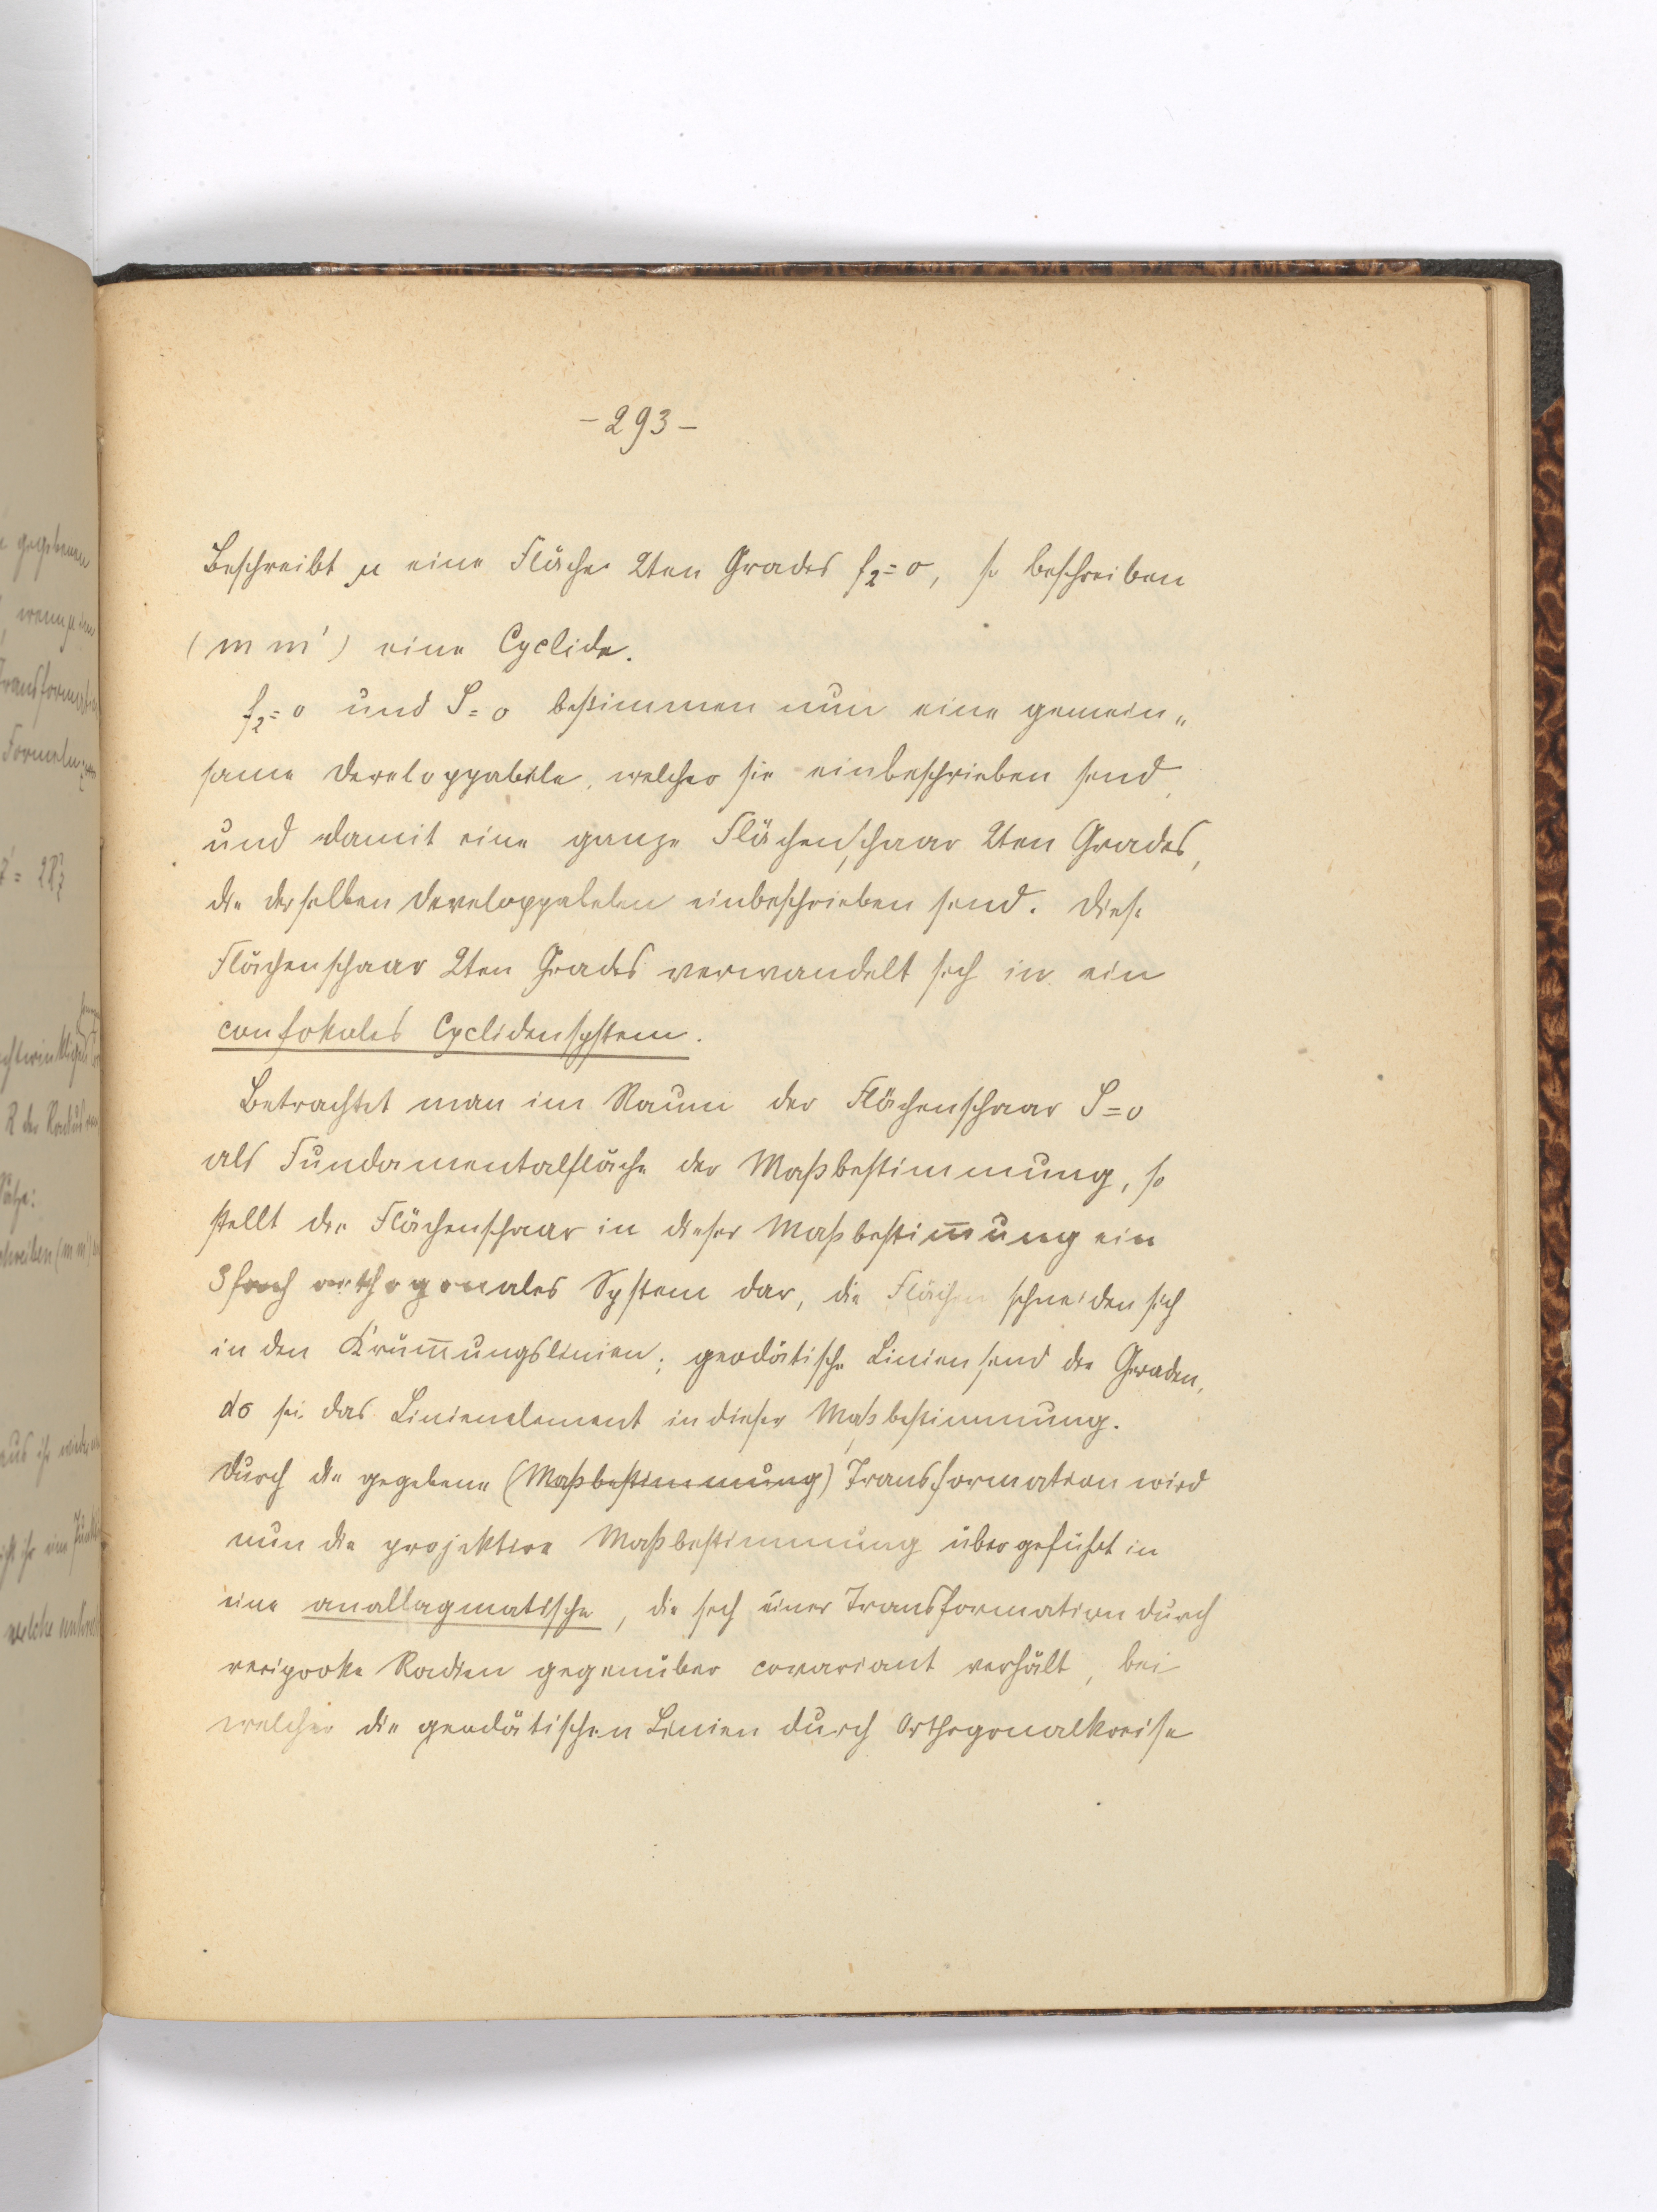 – 293 –
Beschreibt μ eine Fläche 2ten Grades f₂ = 0, so beschreiben
(m m') eine Cyclide.
f₂ = 0 und S = 0 bestimmen nun eine gemein„
same Developpabele, welcher sie einbeschrieben sind,
und damit eine ganze Flächenschaar 2ten Grades,
die derselben Developpabelen einbeschrieben sind. Diese
Flächenschaar 2ten Grades verwandelt sich in ein
confokales Cyclidensystem.
Betrachtet man im Raum der Flächenschaar S = 0
als Fundamentalfläche der Maßbestimmung, so
stellt die Flächenschaar in dieser Maßbestim̅ung ein
3fach orthogonales System dar, die Flächen schneiden sich
in den Krüm̅ungslinien; geodätische Linien sind die Geraden,
dσ sei das Linienelement in dieser Maßbestimmung.
Durch die gegebene (Maßbestimmung) Transformation wird
nun die projektive Maßbestimmung übergeführt in
eine anallagmatische, die sich einer Transformation durch
reziproke Radien gegenüber covariant verhält, bei
welcher die geodätischen Linien durch Orthogonalkreise
gegebenen
wenn μ
Transformation
Formeln
R der Radius
schreiben (m m')
welche